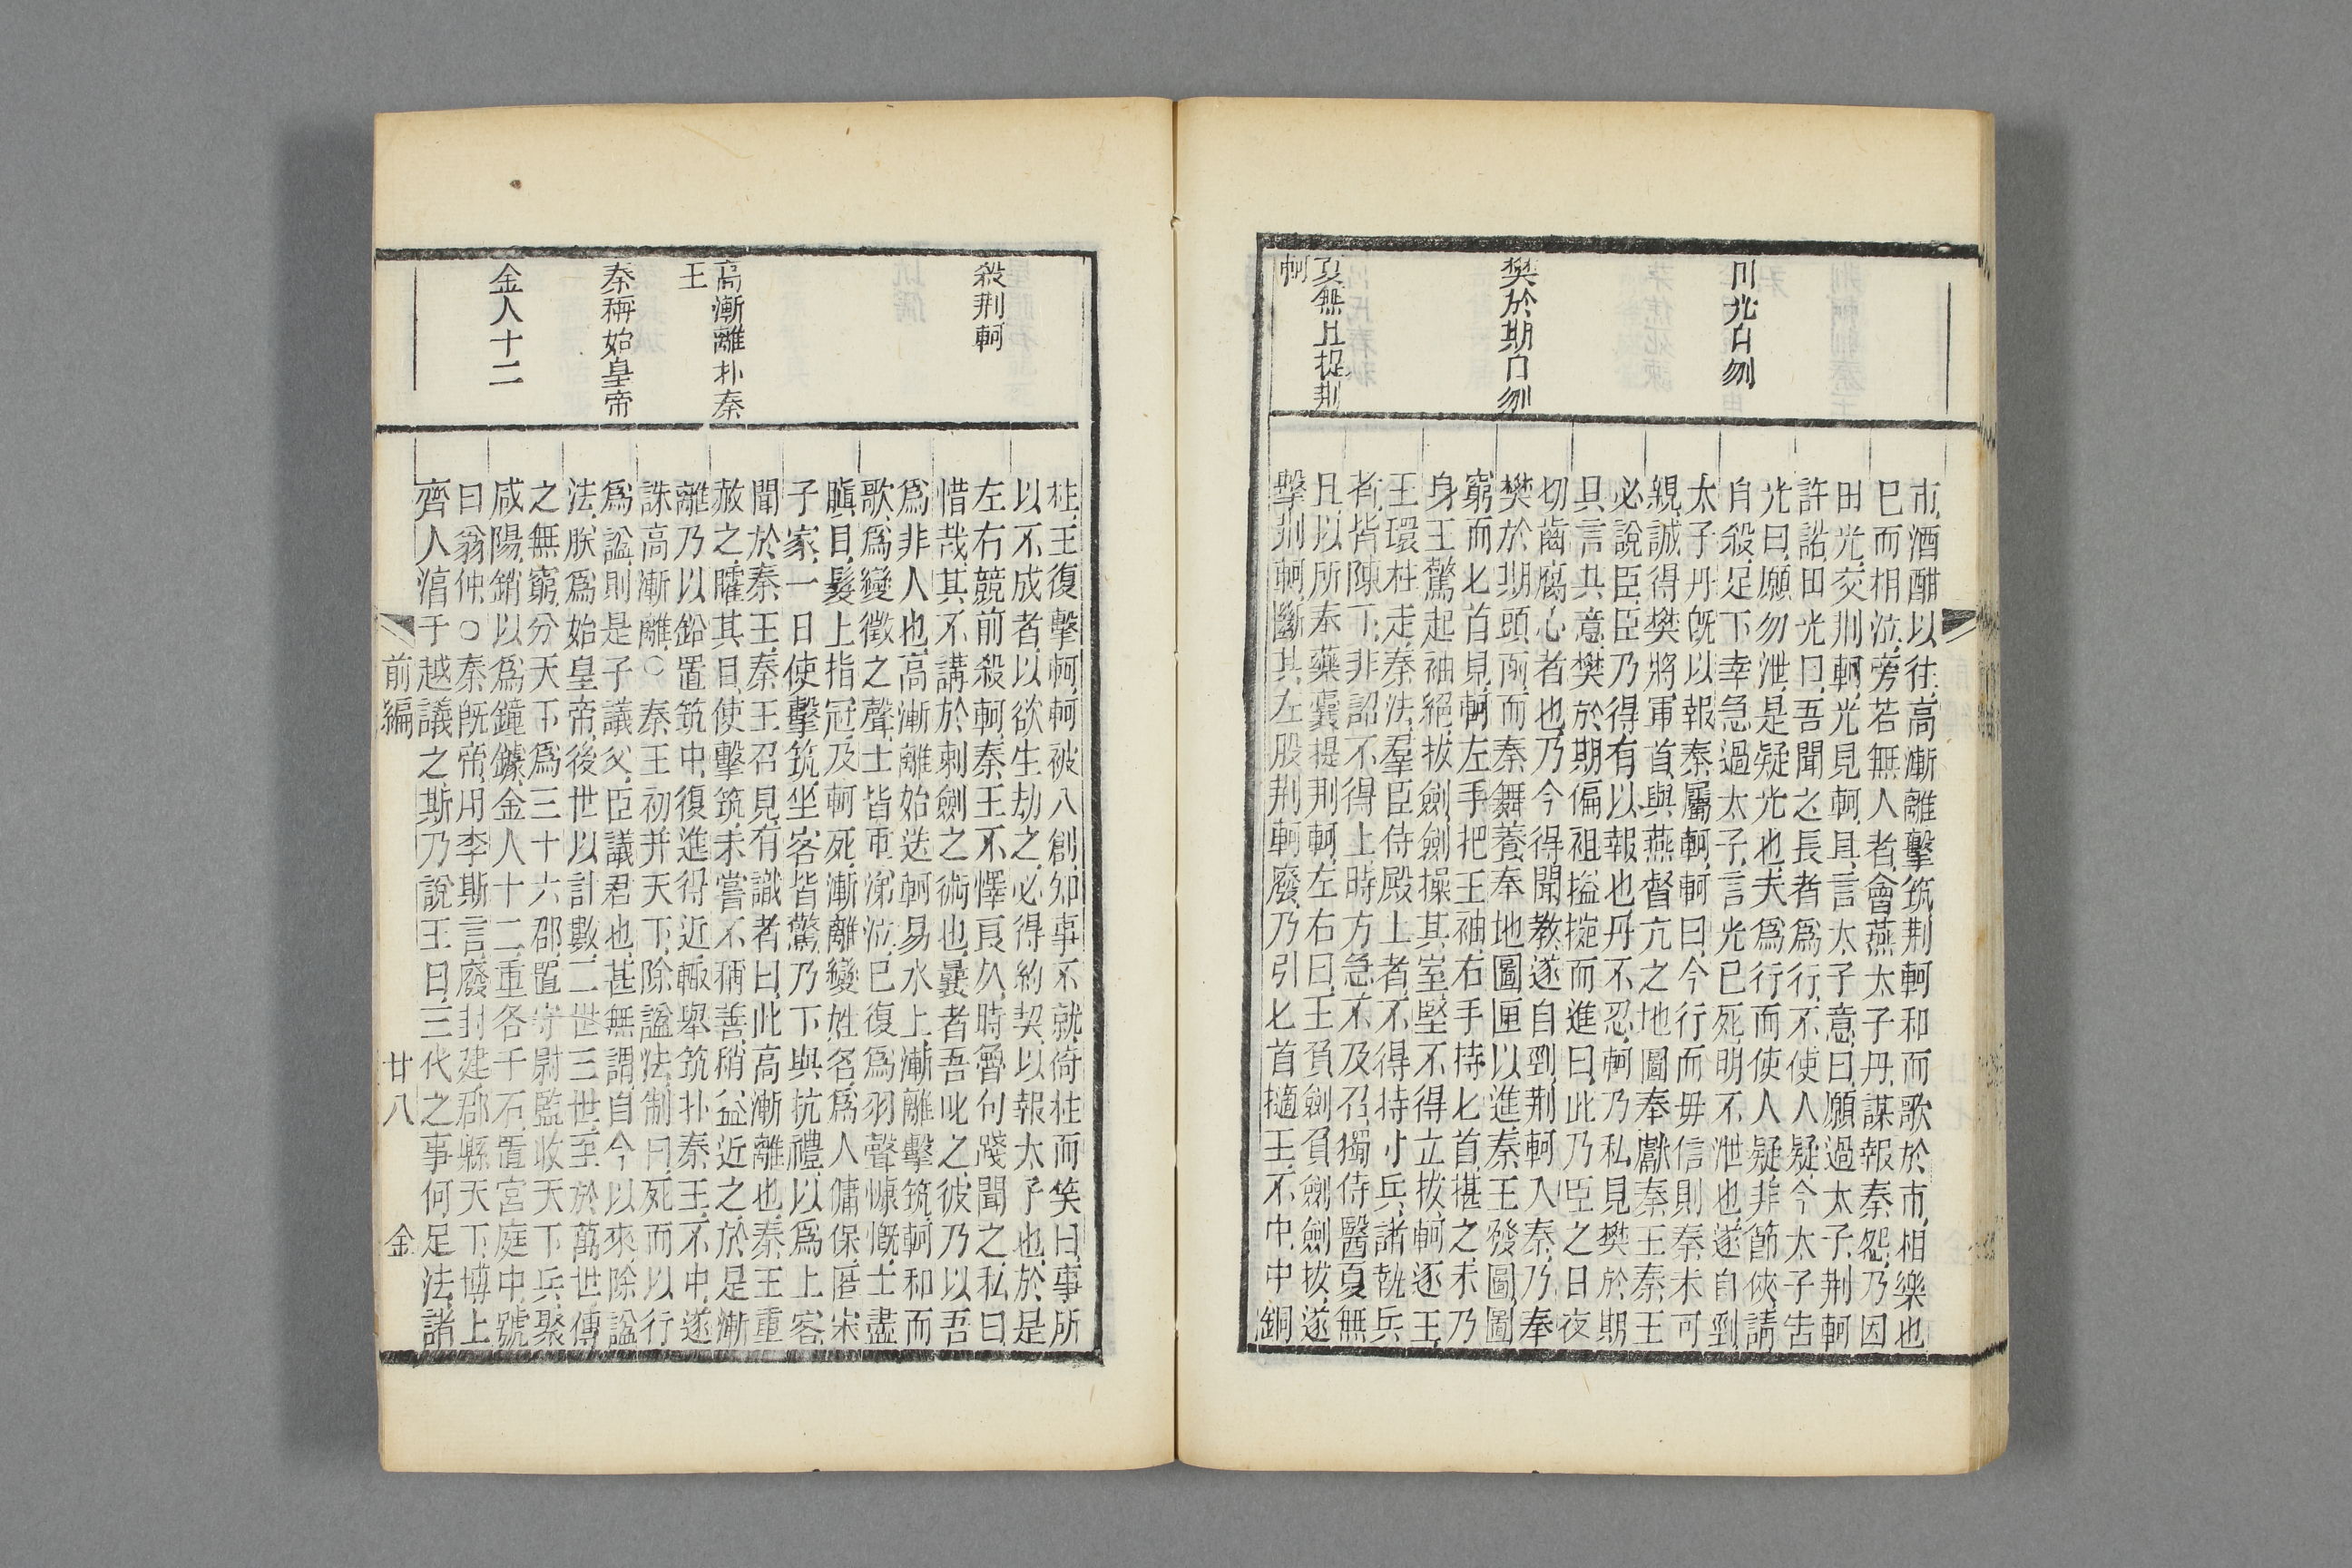 田光自刎
樊於期自刎
夏無且提荆
軻
市酒酣以往高漸離擊筑荆軻和而歌於市相樂也
已而相泣旁若無人者會燕太子丹謀報秦怨乃因
田光交荆軻光見軻且言太子意曰願過太子荆軻
許諾田光曰吾聞之長者爲行不使人疑今太子告
光曰願勿泄是疑光也夫爲行而使人疑非節俠請
自殺足下幸急過太子言光已死明不泄也遂自剄
太子丹旣以報秦屬軻軻曰今行而毋信則秦未可
親誠得樊將軍首與燕督亢之地圖奉獻秦王秦王
必說臣臣乃得有以報也丹不忍軻乃私見樊於期
具言其意樊於期偏袒搤捥而進曰此乃臣之日夜
切齒腐心者也乃今得聞教遂自剄荆軻入秦乃奉
樊於期頭函而秦舞養奉地圖匣以進秦王發圖圖
窮而匕首見軻左手把王袖右手持匕首揕之未乃
身王驚起袖絕拔劍劍操其室堅不得立拔軻逐王
王環柱走秦法羣臣侍殿上者不得持寸兵諸執兵
者皆陳下非詔不得上時方急不及召獨侍醫夏無
且以所奉藥囊提荆軻左右曰王負劍負劍劍拔遂
擊荆軻斷其左股荆軻廢乃引匕首擿王不中中銅
殺荆軻
高漸離扑秦
王
秦稱始皇帝
金人十二
柱王復擊軻軻被八創知事不就倚柱而笑曰事所
以不成者以欲生劫之必得約契以報太子也於是
左右競前殺軻秦王不懌良久時魯句踐聞之私曰
惜哉其不講於刺劍之術也曩者吾叱之彼乃以吾
爲非人也高漸離始送軻易水上漸離擊筑軻和而
歌爲變徵之聲士皆垂涕泣已復爲羽聲慷慨士盡
瞋目髮上指冠及軻死漸離變姓名爲人傭保匿宋
子家一日使擊筑坐客皆驚乃下與抗禮以爲上客
聞於秦王秦王召見有識者曰此高漸離也秦王重
赦之矐其目使擊筑未嘗不稱善稍益近之於是漸
離乃以鉛置筑中復進得近輙舉筑扑秦王不中遂
誅高漸離○秦王初并天下除諡法制曰死而以行
爲諡則是子議父臣議君也甚無謂自今以來除諡
法朕爲始皇帝後世以計數二世三世至於萬世傳
之無窮分天下爲三十六郡置守尉監收天下兵聚
咸陽銷以爲鐘鐻金人十二重各千石置宮庭中號
曰翁仲○秦旣帝用李斯言廢封建郡縣天下博士
齊人淳于越議之斯乃說王曰三代之事何足法諸
前編
廿八
金